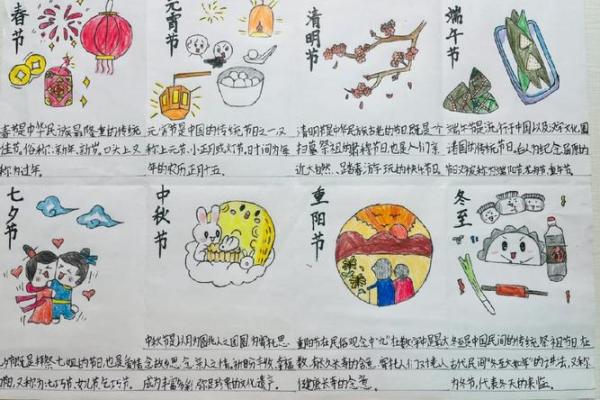 春节
元宵节
清明节
端午节
春节是中华民族最隆重的传统
佳节。俗称:新年、新岁。口头上又
称为过年。
元宵节是中国的传统节日之一又
称上元节、小正月或灯节,时间为每
年的农历正月十五。
清明节是中华民族古老的节日既是一个
扫墓祭祖的肃穆节日,也是人们亲
近大自然、踏春游玩的快乐节日
端午节是流行于中国以及汉字文化圈
诸国的传统节日。
七夕节
中秋节
重阳节
冬至
中秋节是以月之圆兆人之团圆,为寄托思
念故乡思念亲人之情,祈盼丰收、幸福
成为丰富多彩、弥足珍贵的文化遗产。
重阳节在民俗观念中“九”在数字中是最大
数,有长久长寿的含意,寄托人们对老人
健康长寿的
是中国民间的传统祭祖节日在
古代民间“冬至大如年”的讲法,又称
为冬节,代表冬天的来临。
七夕节
也是爱情
又称为七巧节、女儿节乞巧节。